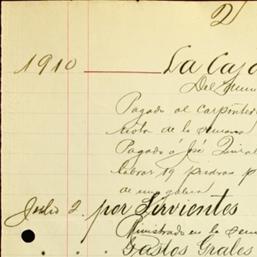 2
1910
La Caja
Del
Pagado al Carpintero
de la semana
Pagado á José
labrar 19 piedras p
de
Julio 2. por Sirvientes
Ministrado en la sem
Gastos Grales